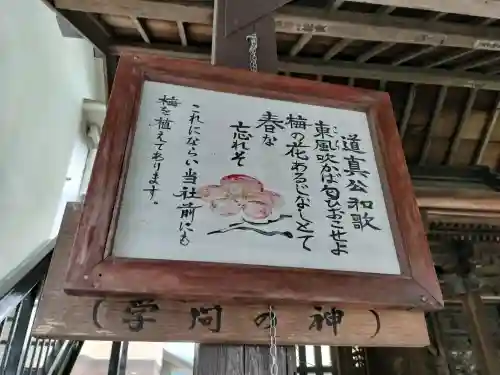 道真公和歌
東風吹かば匂ひおこせよ
梅の花あるじなしとて
春な
忘れそ
これにならい当社前にも
梅を植えてあります。
(学問の神)